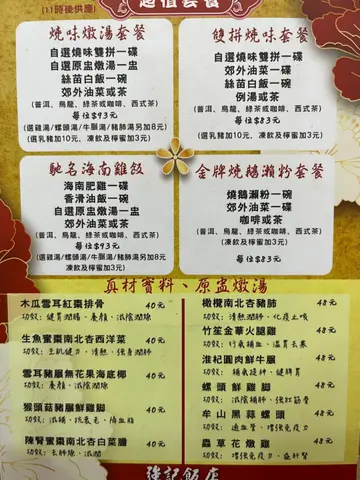 (11時後供應)
超值套餐
燒味燉湯套餐
自選燒味雙拼一碟
自選原盅燉湯一盅
絲苗白飯一碗
郊外油菜或茶
(普洱、烏龍、綠茶或咖啡、西式茶)
每位$93元
(選雞湯/螺頭湯/牛𦟌湯/豬肺湯另加8元)
(選乳豬加10元、凍飲及檸蜜加3元)
雙拼燒味套餐
自選燒味雙拼一碟
郊外油菜一碟
絲苗白飯一碗
例湯或茶
(普洱、烏龍、綠茶或咖啡、西式茶)
每位$83元
(選乳豬加10元、凍飲及檸蜜加3元)
馳名海南雞飯
海南肥雞一碟
香滑油飯一碗
自選原盅燉湯一盅
郊外油菜或茶
(普洱、烏龍、綠茶或咖啡、西式茶)
每位$93元
(選雞湯/螺頭湯/牛𦟌湯/豬肺湯另加8元
凍飲及檸蜜加3元)
金牌燒鵝瀨粉套餐
燒鵝瀨粉一碗
郊外油菜一碟
咖啡或茶
(凍飲及檸蜜加3元)
每位$83元
真材實料、原盅燉湯
木瓜雪耳紅棗排骨 40元
功效:健胃潤腸、養顏、滋陰潤燥
生魚蜜棗南北杏西洋菜 40元
功效:生肌健力、清熱、強身潤肺
雪耳豬𦟌無花果海底椰 40元
功效:養顏、滋陰潤燥
猴頭菇豬𦟌鮮雞腳 40元
功效:滋補、抗衰老、降血脂
陳腎蜜棗南北杏白菜膽 40元
功效:去肺燥、滋潤
橄欖南北杏豬肺 48元
功效:清熱潤肺、化痰止咳
竹笙金華火腿雞 48元
功效:行氣補血、溫胃去寒
淮杞圓肉鮮牛𦟌 48元
功效:補氣提神、健脾胃
螺頭鮮雞腳 48元
功效:滋陰補肺、強壯筋骨
牟山黑蒜螺頭 48元
功效:通血管、增強免疫力
蟲草花燉雞 48元
功效:增強免疫力、益肝腎
強記飯店